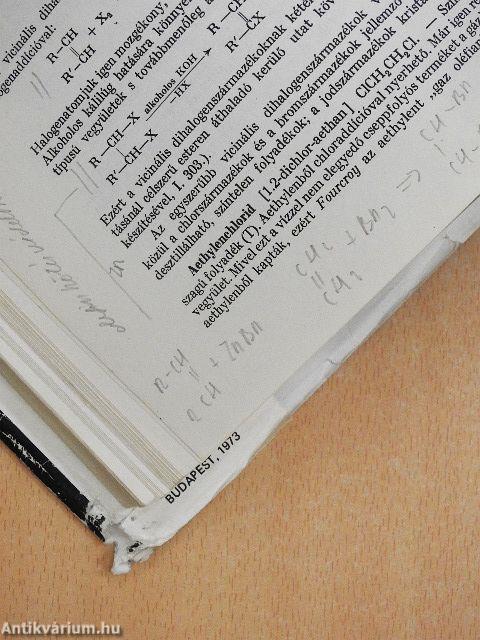 vicinális diha
ogenaddícióval:
R—CH
R'—CH
+ X₂
Halogenatomjuk igen mozgékony,
Alkoholos kálilúg hatására könnyen
típusú vegyületek s továbbmenőleg a
R—CH—X
R'—CH—X
alkoholos KOH
—HX
R—CH
R'—CX
Ezért a vicinális dihalogenszármazékoknak kétér
tásánál célszerű esteren áthaladó kerülő utat köv
készítésével, I, 303.).
Az egyszerűbb vicinális dihalogenszármazékok
közül a chlorszármazékok és a bromszármazékok jellemző
desztillálható, színtelen folyadékok; a jodszármazékok krista
Aethylenchlorid [1,2-dichlor-aethan], ClCH₂CH₂Cl. — Szín
szagú folyadék (T). Aethylenből chloraddícióval nyerhető. Már igen r
vegyület. Mivel ezt a vízzel nem elegyedő cseppfolyós terméket a gáz
aethylenből kapták, ezért Fourcroy az aethylent „gaz oléfian
Zn
CH₂
CH₂
R-CH
R CH
BUDAPEST, 1973
Antikvárium.hu